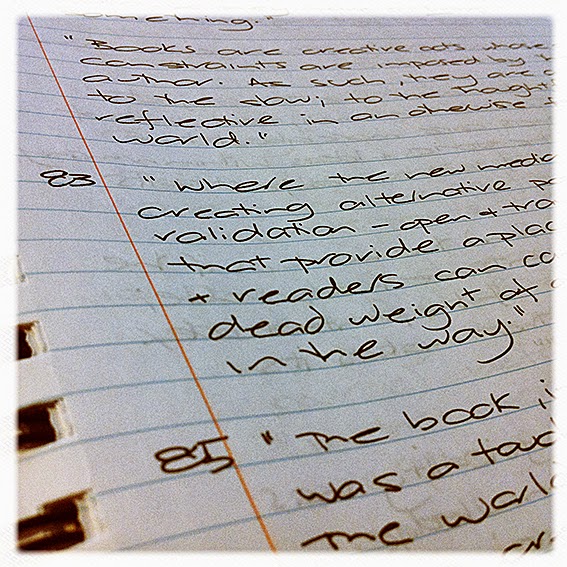 something."
"Books are creative acts whose
constraints are imposed by
author. As such, they are
to the slow, to the thought
reflective in an otherwise
world."
83 "Where the new media
creating alternative
validation - open + tra
that provide a plac
+ readers can co
dead weight of
in the way."
85 "The book, i
was a touc
the world